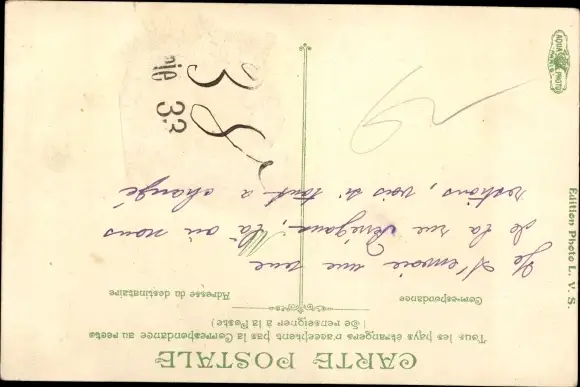 CARTE POSTALE
Tous les pays étrangers n'acceptent pas la Correspondance au recto
(Se renseigner à la Poste)
Correspondance
Adresse du destinataire
Je t'envoie une vue
de la rue là où nous
restions, vois si tout a changé
Edition Photo L. V. S.
AQUA PHOTO
38
33